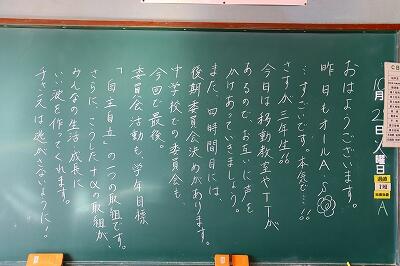 10月2日火曜日 A
おはようございます。
昨日もオールA、S
…すごいです。本気で…!!
さすが三年生!!
今日は移動教室やTTが
あるので、お互いに声を
かけあっていきましょう。
また、四時間目には、
後期委員会決めがあります。
中学校での委員会も、
今回で最後。
委員会活動も、学年目標
「自主自立」の一つの取組です。
さらに、こうした+αの取組が、
みんなの生活、成長に
いい波を作ってくれます。
チャンスは逃がさないように!